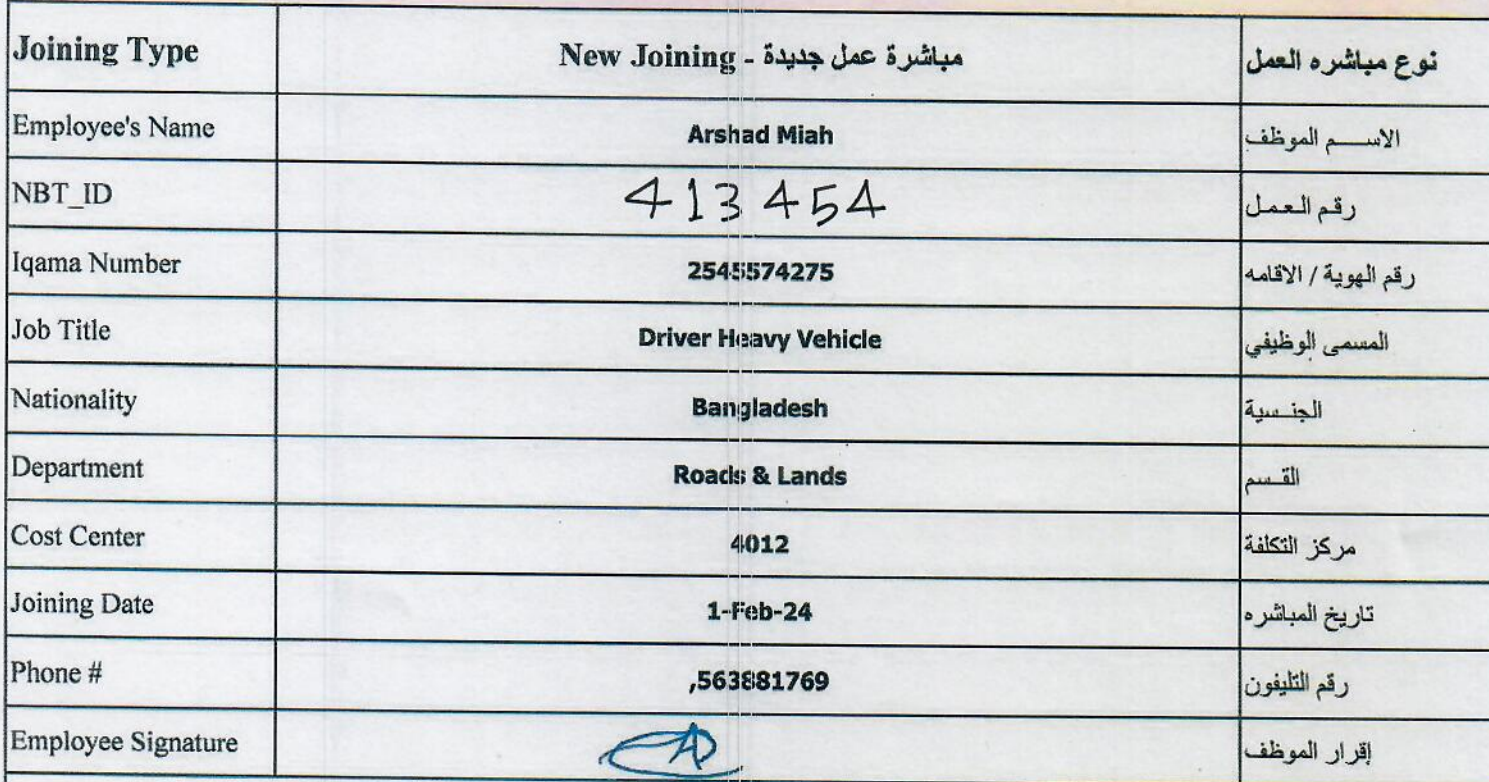 Joining Type New Joining - مباشرة عمل جديدة نوع مباشره العمل
Employee's Name Arshad Miah الاســـم الموظف
NBT_ID 413454 رقم العمل
Iqama Number 2545574275 رقم الهوية / الاقامه
Job Title Driver Heavy Vehicle المسمى الوظيفي
Nationality Bangladesh الجنــسية
Department Roads & Lands القــسم
Cost Center 4012 مركز التكلفة
Joining Date 1-Feb-24 تاريخ المباشره
Phone # ,563881769 رقم التليفون
Employee Signature إقرار الموظف